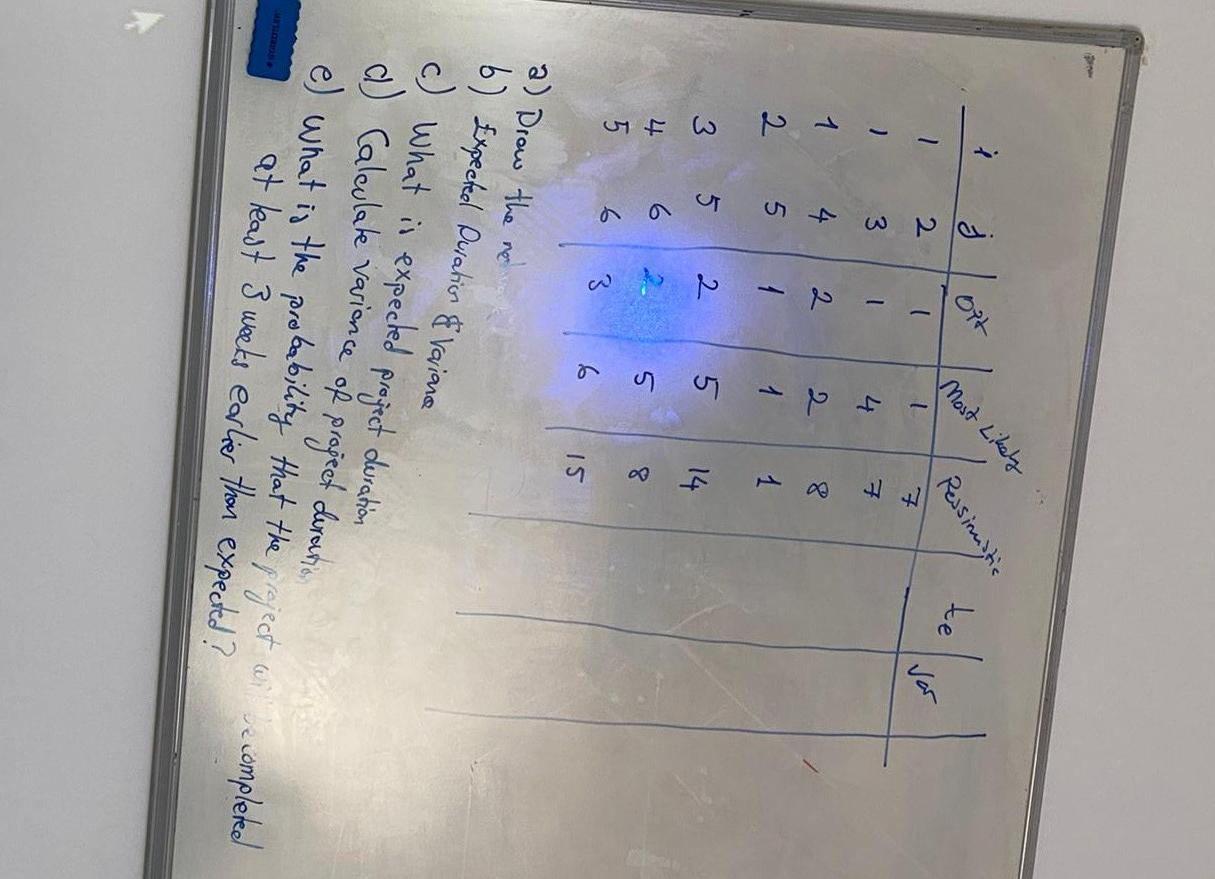 i j Opt Most Likely Pessimistic te Var
1 2 1 1 7
1 3 1 4 7
1 4 2 2 8
2 5 1 1 1
3 5 2 5 14
4 6 2 5 8
5 6 3 6 15
a) Draw the
b) Expected Duration & Variance
c) What is expected project duration
d) Calculate variance of project duration
e) What is the probability that the project will be completed
at least 3 weeks earlier than expected?